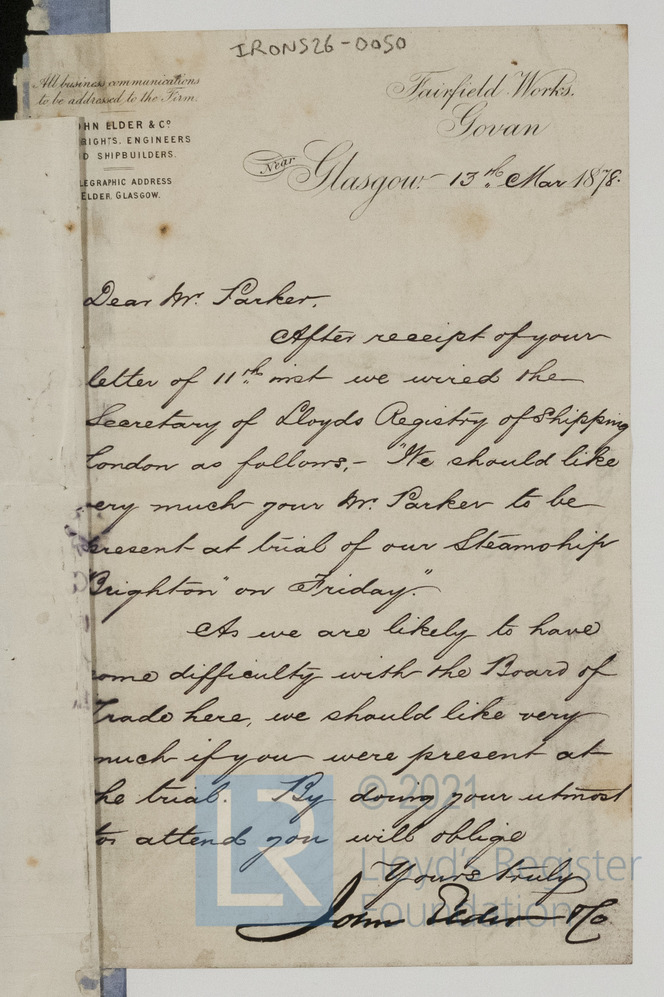 IRONS26-0050
All business communications
to be addressed to the Firm.
OHN ELDER & Cº
IGHTS. ENGINEERS
D SHIPBUILDERS.
LEGRAPHIC ADDRESS
ELDER, GLASGOW.
Fairfield Works.
Govan
Near Glasgow. 13th Mar 1878.
Dear Mr. Parker,
After receipt of your
letter of 11th inst we wired the
Secretary of Lloyds Registry of Shipping
London as follows,- "We should like
ery much your Mr. Parker to be
present at trial of our Steamship
"Brighton" on Friday."
As we are likely to have
ome difficulty with the Board of
Trade here, we should like very
much if you were present at
he trial. By doing your utmost
to attend you will oblige
Yours truly
John Elder & Co
LR
© 2021
Lloyd's Register
Foundation